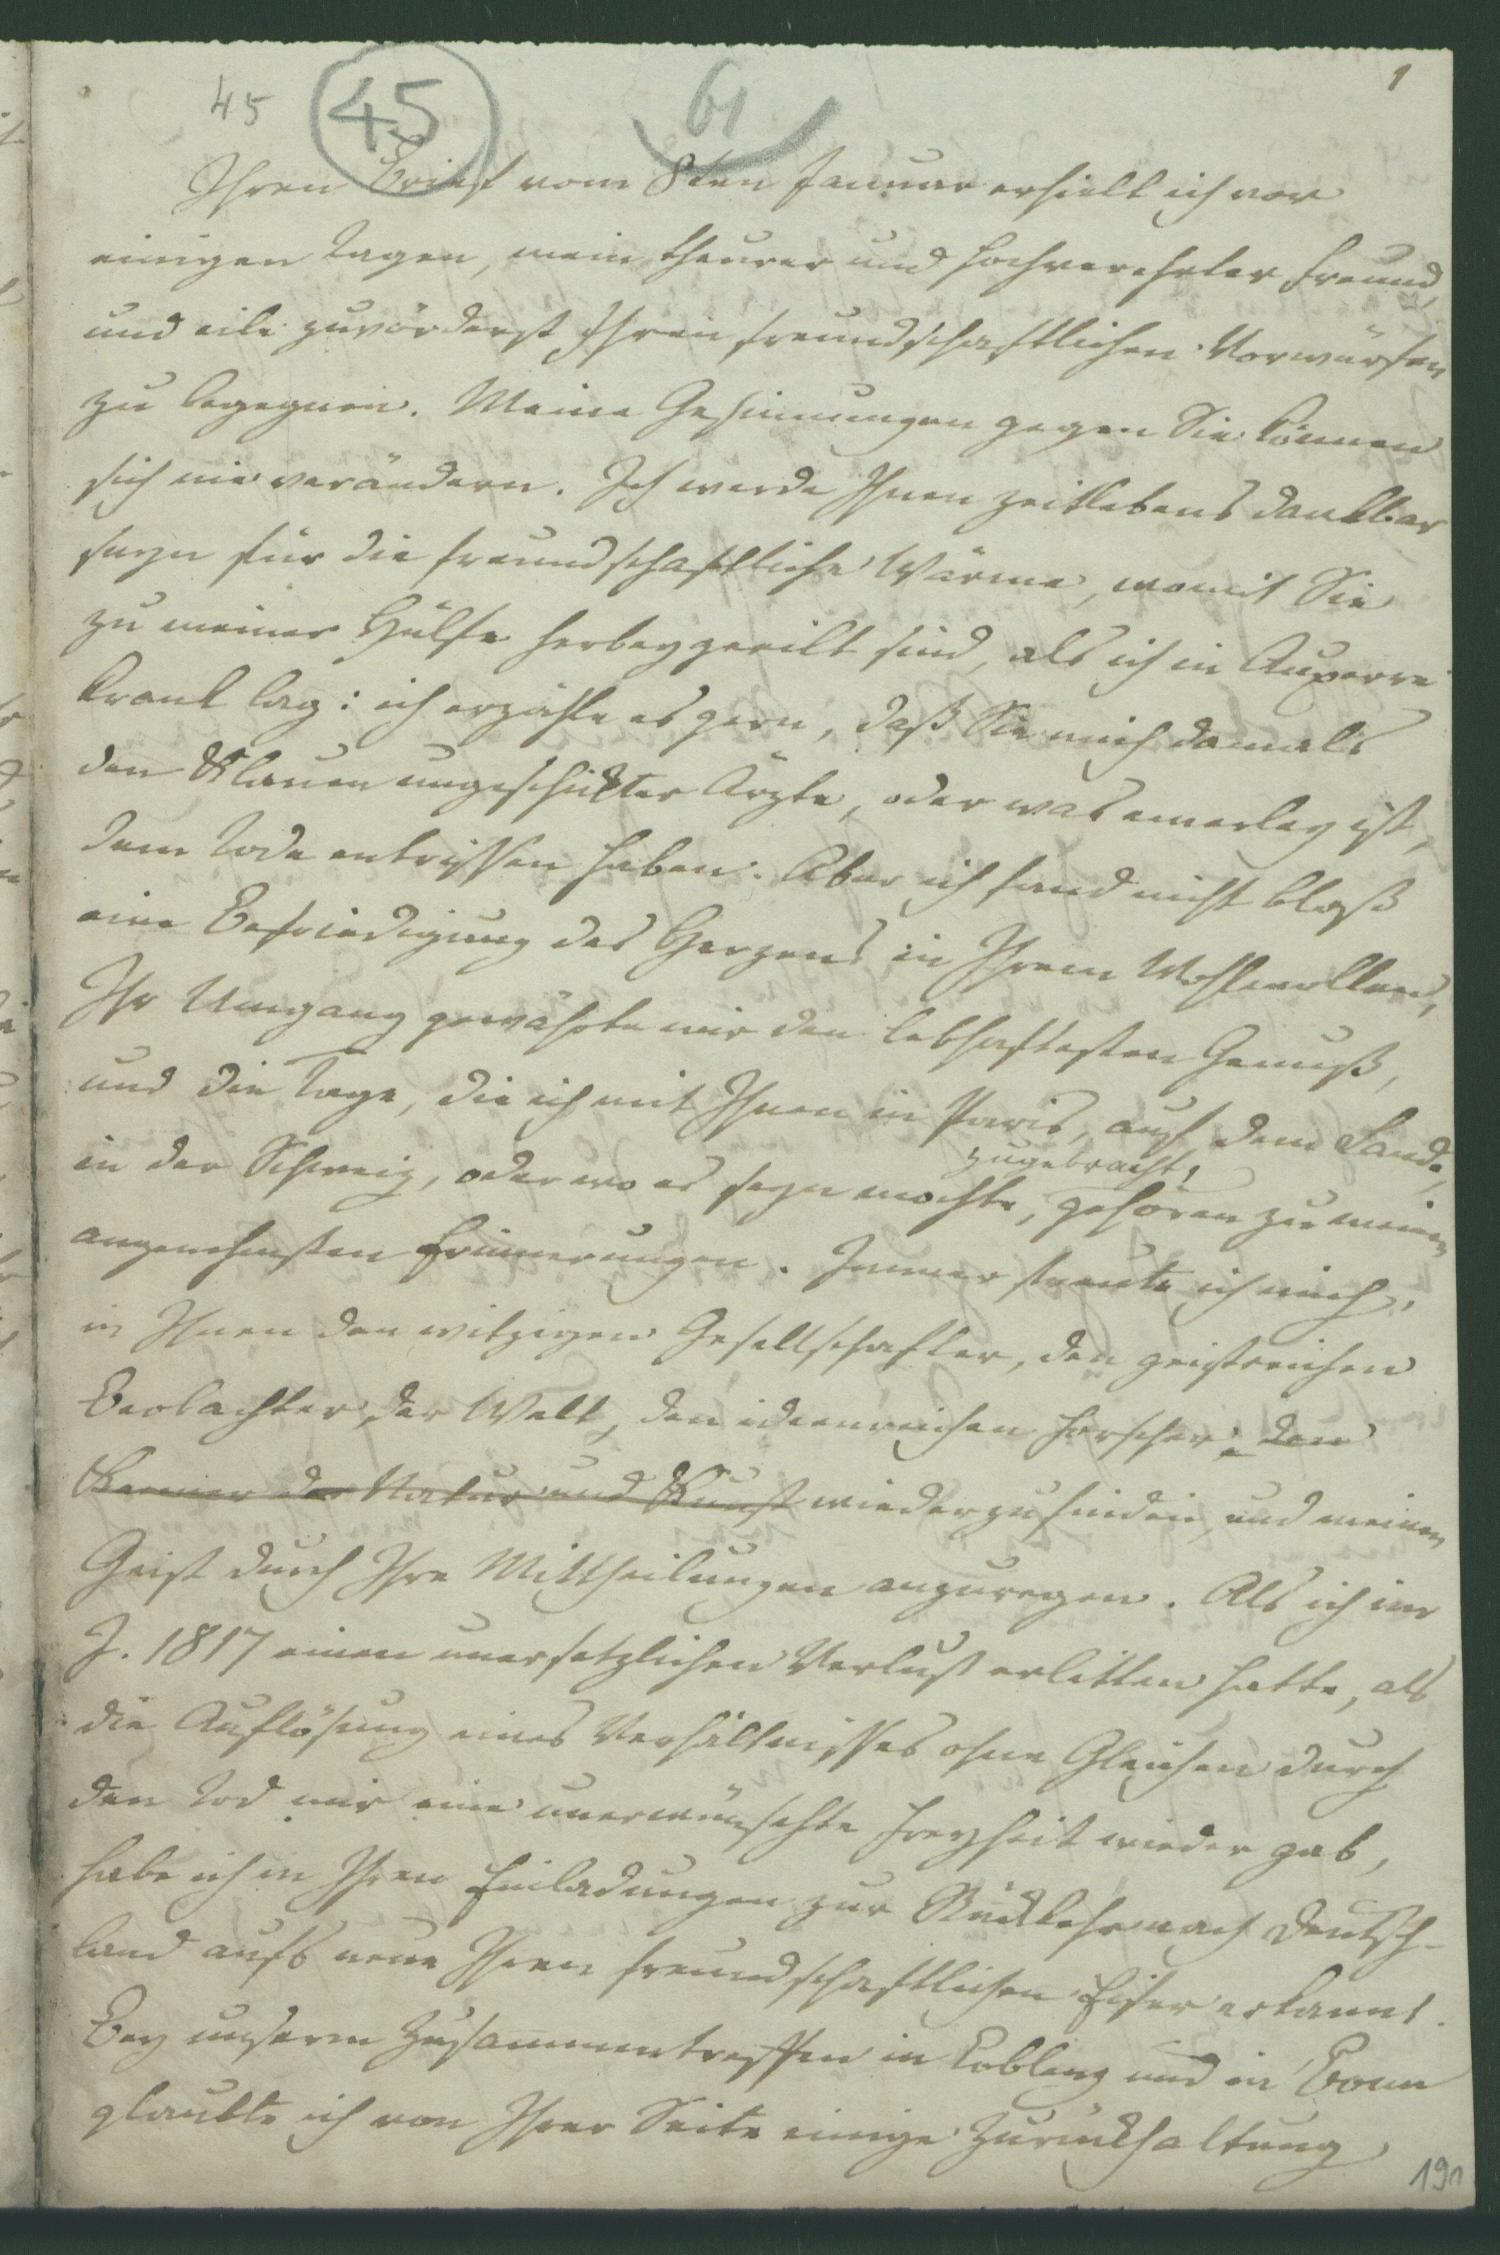 1
45 45 61
Ihren Brief vom 8ten Januar erhielt ich vor
einigen Tagen, mein theurer und hochverehrter Freund,
und eile zuvörderst Ihren freundschaftlichen Vorwürfen
zu begegnen. Meine Gesinnungen gegen Sie können
sich nie verändern. Ich werde Ihnen zeitlebens dankbar
seyn für die freundschaftliche Wärme, womit Sie
zu meiner Hülfe herbeygeeilt sind, als ich in Auxerre
krank lag: ich erzähle es gern, daß Sie mich damals
den Klauen ungeschickter Ärzte, oder was einerley ist,
dem Tode entrissen haben. Aber ich fand nicht bloß
eine Befriedigung des Herzens in Ihrem Wohlwollen,
Ihr Umgang gewährte mir den lebhaftesten Genuß,
und die Tage, die ich mit Ihnen in Paris, auf dem Lande,
zugebracht,
in der Schweiz, oder wo es seyn mochte, gehören zu meinen
angenehmsten Erinnerungen. Immer freute ich mich,
in Ihnen den witzigen Gesellschafter, den geistreichen
Beobachter der Welt, den ideenreichen Forscher, den
Kenner der Natur und Kunst wiederzufinden, und meinen
Geist durch Ihre Mittheilungen anzuregen. Als ich im
J. 1817 einen unersetzlichen Verlust erlitten hatte, als
die Auflösung eines Verhältnisses ohne Gleichen durch
den Tod mir eine unerwünschte Freyheit wieder gab,
habe ich in Ihren Einladungen zur Rückkehr nach Deutsch-
land aufs neue Ihren freundschaftlichen Eifer erkannt.
Bey unserm Zusammentreffen in Coblenz und in Bonn
glaubte ich von Ihrer Seite einige Zurückhaltung
191